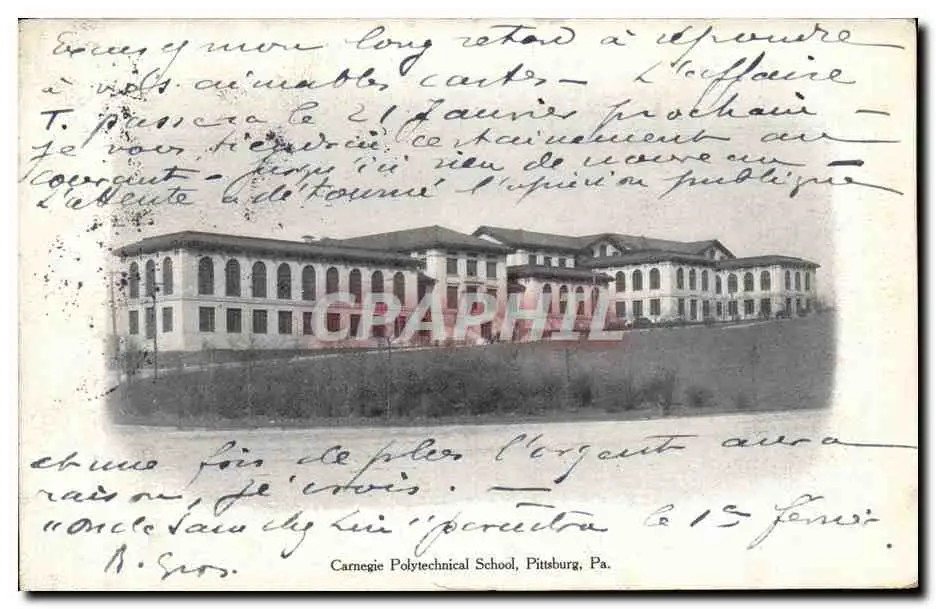 Excusez mon long retard à répondre
à vos aimables cartes – L'affaire
T. passera le 21 Janvier prochain –
je vous tiendrai certainement au
courant – jusqu'ici rien de nouveau –
L'attente a détourné l'opinion publique
CARTAGRAPHILE
et une fois de plus l'argent aura
raison, je crois. –
"Oncle Sam chez lui" paraîtra le 1er Fevrier.
R. Gros.
Carnegie Polytechnical School, Pittsburg, Pa.